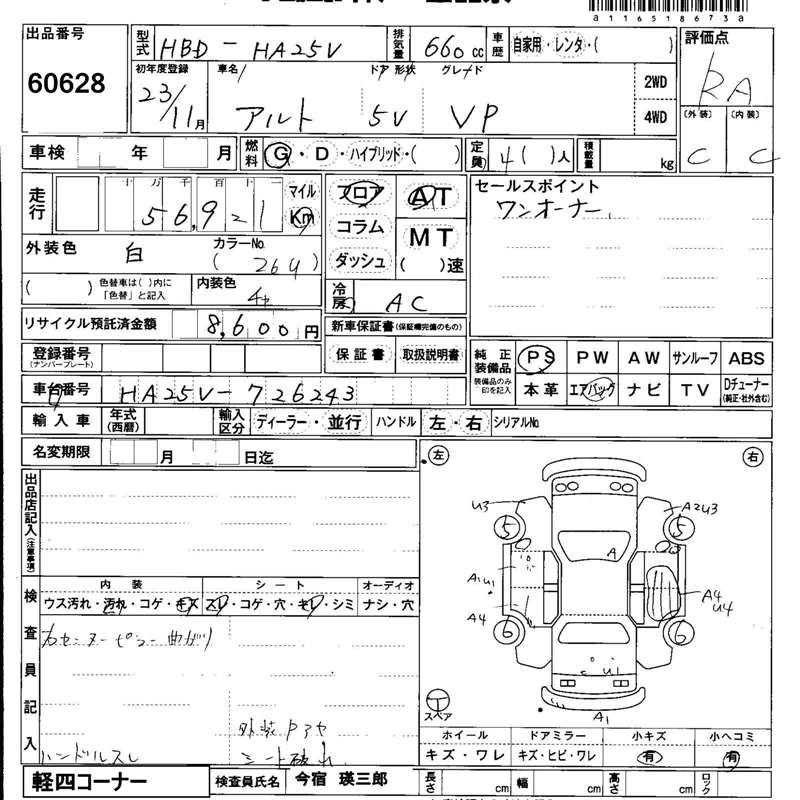 a116518673a
出品番号
60628
型式 HBD - HA25V
排気量 660 cc
車歴 自家用・レンタ・( )
評価点
RA
初年度登録 23/11月
車名 アルト
ドア 形状 5V
グレード VP
2WD
4WD
(外装) C
(内装) C
車検 年 月
燃料 G・D・ハイブリッド・( )
定員 4( )人
積載量 kg
走行 十万千百十
56,921
マイル
Km
フロア
コラム
ダッシュ
AT
MT
( )速
セールスポイント
ワンオーナー
外装色 白
カラーNo.
( 26U )
( ) 色替車は( )内に「色替」と記入
内装色
冷房 AC
リサイクル預託済金額 8,600円
新車保証書(保証欄完備のもの)
保証書 取扱説明書
登録番号
(ナンバープレート)
純正装備品
装備品のみ印を記入
PS PW AW サンルーフ ABS
本革 エアバッグ ナビ TV Dチューナー
(純正・社外含む)
車台番号 HA25V-726243
輸入車 年式(西暦) 輸入区分 ディーラー・並行 ハンドル 左・右 シリアルNo.
名変期限 月 日迄
左
右
出品店記入(注意事項)
U3
A2U3
5
5
A
A1U1
A4
A4
U4
6
6
U1
A1
スペア
検査員記入
内装 シート オーディオ
ウス汚れ・汚れ・コゲ・キズ スレ・コゲ・穴・キレ・シミ ナシ・穴
右センターピラー曲がり
外装
シート破れ
ハンドルスレ
ホイール ドアミラー 小キズ 小ヘコミ
キズ・ワレ キズ・ヒビ・ワレ 有 有
軽四コーナー
検査員氏名 今宿 瑛三郎
長さ cm 幅 cm 高さ cm ロック